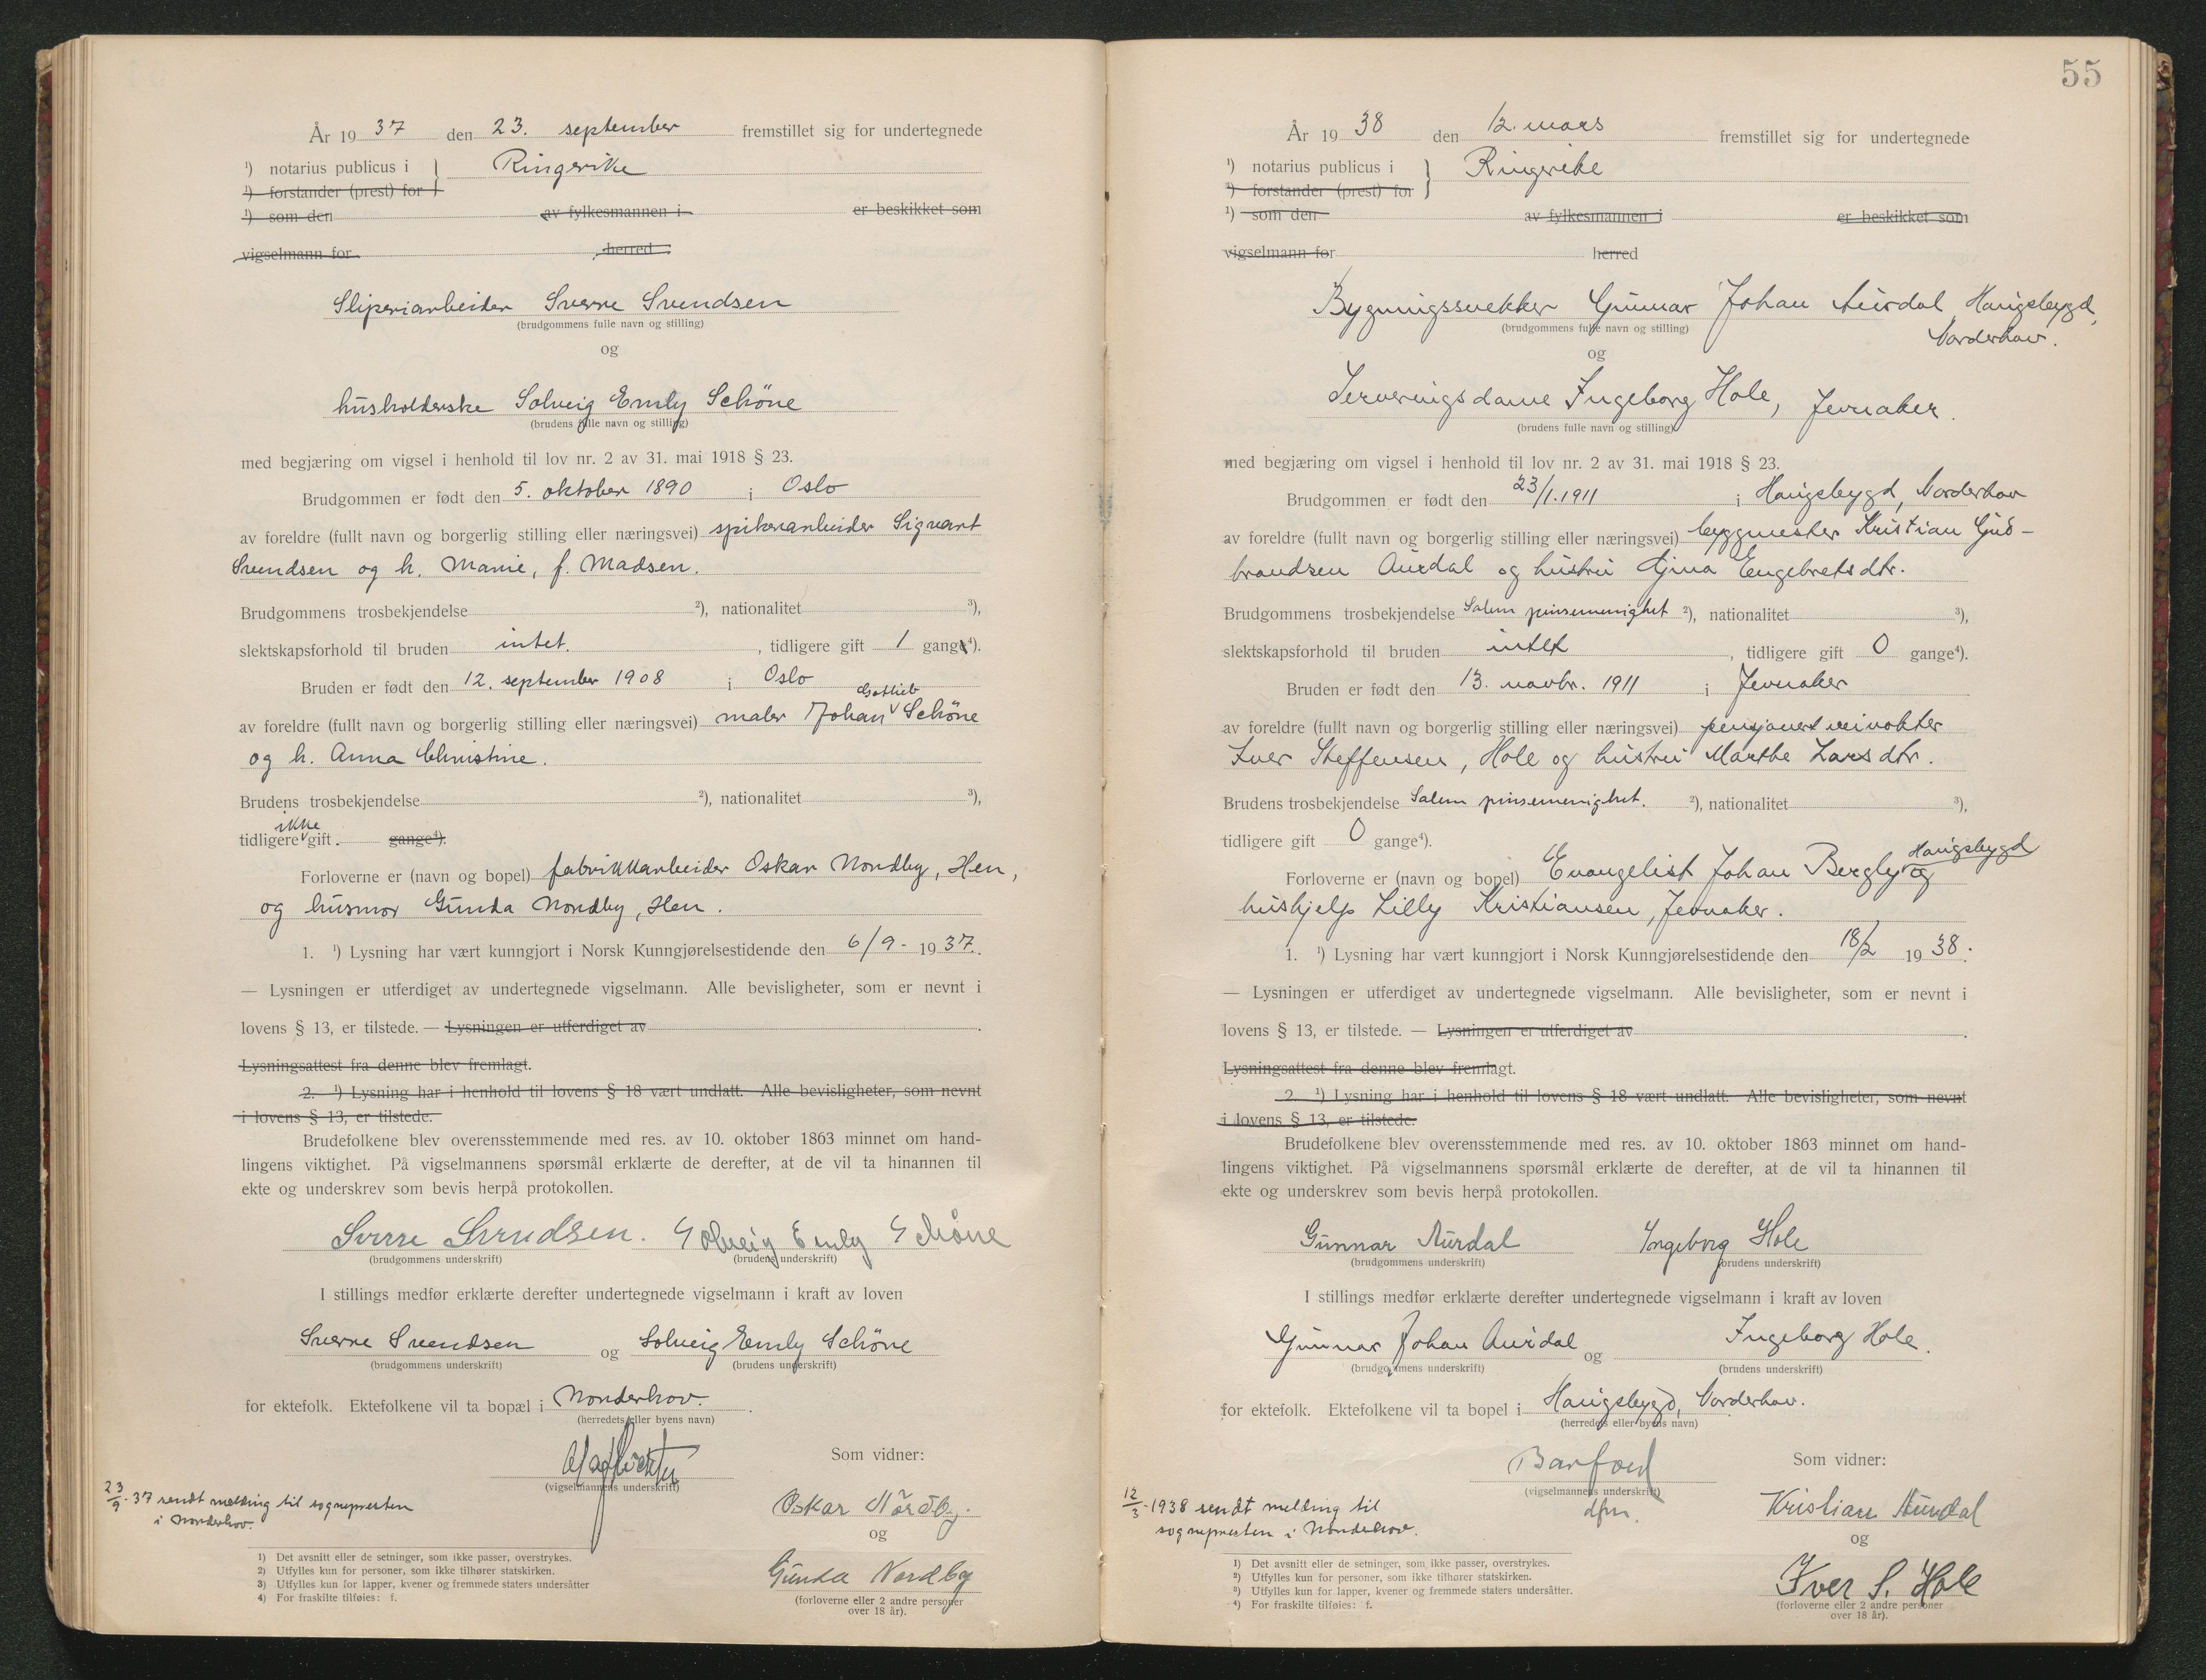 År 19 37 den 23. september fremstillet sig for undertegnede
¹) notarius publicus i } Ringerike
¹) forstander (prest) for
¹) som den av fylkesmannen i er beskikket som
vigselmann for herred
Sliperiarbeider Sverre Svendsen
(brudgommens fulle navn og stilling)
og
husholderske Solveig Emly Schöne
(brudens fulle navn og stilling)
med begjæring om vigsel i henhold til lov nr. 2 av 31. mai 1918 § 23.
Brudgommen er født den 5. oktober 1890 i Oslo
av foreldre (fullt navn og borgerlig stilling eller næringsvei) spikerarbeider Sigvart
Svendsen og h. Marie, f. Madsen.
Brudgommens trosbekjendelse ²), nationalitet ³),
slektskapsforhold til bruden intet. , tidligere gift 1 gang⁴).
Bruden er født den 12. september 1908 i Oslo
Gotlieb
av foreldre (fullt navn og borgerlig stilling eller næringsvei) maler Johan Schöne
og h. Anna Christine.
Brudens trosbekjendelse ²), nationalitet ³),
ikke
tidligere gift. gange⁴).
Forloverne er (navn og bopel) fabrikkarbeider Oskar Nordby, Hen,
og husmor Gunda Nordby, Hen.
1. ¹) Lysning har vært kunngjort i Norsk Kunngjørelsestidende den 6/9 - 1937.
— Lysningen er utferdiget av undertegnede vigselmann. Alle bevisligheter, som er nevnt i
lovens § 13, er tilstede. — Lysningen er utferdiget av .
Lysningsattest fra denne blev fremlagt.
2. ¹) Lysning har i henhold til lovens § 18 vært undlatt. Alle bevisligheter, som nevnt
i lovens § 13, er tilstede.
Brudefolkene blev overensstemmende med res. av 10. oktober 1863 minnet om hand-
lingens viktighet. På vigselmannens spørsmål erklærte de derefter, at de vil ta hinannen til
ekte og underskrev som bevis herpå protokollen.
Sverre Svendsen. Solveig Emly Schöne
(brudgommens underskrift) (brudens underskrift)
I stillings medfør erklærte derefter undertegnede vigselmann i kraft av loven
Sverre Svendsen og Solveig Emly Schöne
(brudgommens underskrift) (brudens underskrift)
for ektefolk. Ektefolkene vil ta bopæl i Norderhov.
(herredets eller byens navn)
Som vidner:
(vigselmannens underskrift)
23/9-37 sendt melding til sognepresten
i Norderhov.
Oskar Nordby.
og
Gunda Nordby
(forloverne eller 2 andre personer
over 18 år).
1) Det avsnitt eller de setninger, som ikke passer, overstrykes.
2) Utfylles kun for personer, som ikke tilhører statskirken.
3) Utfylles kun for lapper, kvener og fremmede staters undersåtter
4) For fraskilte tilføies: f.
55
År 19 38 den 12. mars fremstillet sig for undertegnede
¹) notarius publicus i } Ringerike
¹) forstander (prest) for
¹) som den av fylkesmannen i er beskikket som
vigselmann for herred
Bygningssnekker Gunnar Johan Aurdal Haugsbygd,
Norderhov.
(brudgommens fulle navn og stilling)
og
Serveringsdame Ingeborg Hole, Jevnaker.
(brudens fulle navn og stilling)
med begjæring om vigsel i henhold til lov nr. 2 av 31. mai 1918 § 23.
Brudgommen er født den 23/1. 1911 i Haugsbygd, Norderhov
av foreldre (fullt navn og borgerlig stilling eller næringsvei) byggmester Kristian Gud-
brandsen Aurdal og hustru Gina Engebretsdtr.
Brudgommens trosbekjendelse Salem pinsemenighet ²), nationalitet ³),
slektskapsforhold til bruden intet , tidligere gift 0 gange⁴).
Bruden er født den 13. novbr. 1911 i Jevnaker
av foreldre (fullt navn og borgerlig stilling eller næringsvei) pensjonert veivokter
Iver Steffensen, Hole og hustru Marthe Larsdtr.
Brudens trosbekjendelse Salem pinsemenighet. ²), nationalitet ³),
tidligere gift 0 gange⁴).
Haugsbygd
Forloverne er (navn og bopel) Evangelist Johan Bergly og
hushjelp Lilly Kristiansen, Jevnaker.
1. ¹) Lysning har vært kunngjort i Norsk Kunngjørelsestidende den 18/2 1938.
— Lysningen er utferdiget av undertegnede vigselmann. Alle bevisligheter, som er nevnt i
lovens § 13, er tilstede. — Lysningen er utferdiget av .
Lysningsattest fra denne blev fremlagt.
2. ¹) Lysning har i henhold til lovens § 18 vært undlatt. Alle bevisligheter, som nevnt
i lovens § 13, er tilstede.
Brudefolkene blev overensstemmende med res. av 10. oktober 1863 minnet om hand-
lingens viktighet. På vigselmannens spørsmål erklærte de derefter, at de vil ta hinannen til
ekte og underskrev som bevis herpå protokollen.
Gunnar Aurdal Ingeborg Hole
(brudgommens underskrift) (brudens underskrift)
I stillings medfør erklærte derefter undertegnede vigselmann i kraft av loven
Gunnar Johan Aurdal og Ingeborg Hole.
(brudgommens underskrift) (brudens underskrift)
for ektefolk. Ektefolkene vil ta bopel i Haugsbygd, Norderhov.
(herredets eller byens navn)
Barfoed Som vidner:
(vigselmannens underskrift)
dfm.
12/3-1938 sendt melding til
sognepresten i Norderhov.
Kristian Aurdal
og
Iver S. Hole
(forloverne eller 2 andre personer
over 18 år).
1) Det avsnitt eller de setninger, som ikke passer, overstrykes.
2) Utfylles kun for personer, som ikke tilhører statskirken.
3) Utfylles kun for lapper, kvener og fremmede staters undersåtter.
4) For fraskilte tilføies: f.